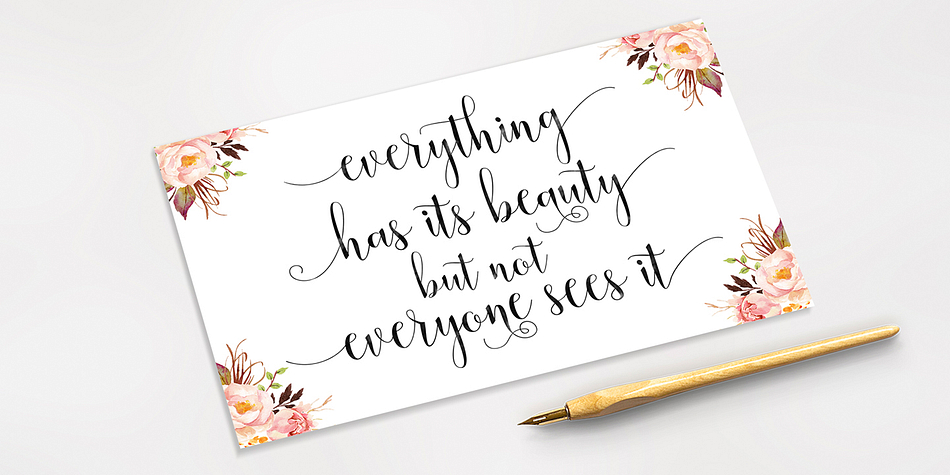 everything
has its beauty
but not
everyone sees it